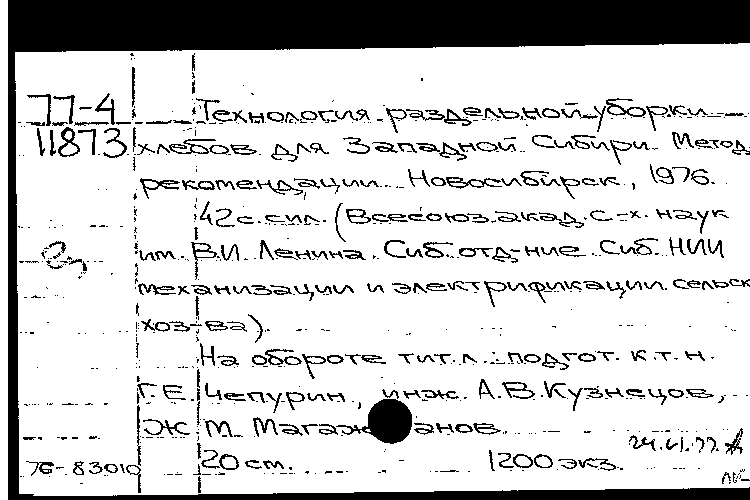 77-4
11873
Технология раздельной уборки
хлебов для Западной Сибири. Метод.
рекомендации. Новосибирск, 1976.
42с.сил. (Всесоюз.акад.с.-х.наук
им. В.И. Ленина. Сиб.отд-ние. Сиб. НИИ
механизации и электрификации сельск.
хоз-ва).
На обороте тит.л.: подгот. к.т.н.
Г.Е. Чепурин, инж. А.В.Кузнецов,
Ж М.
20см. 1200экз.
76-83010